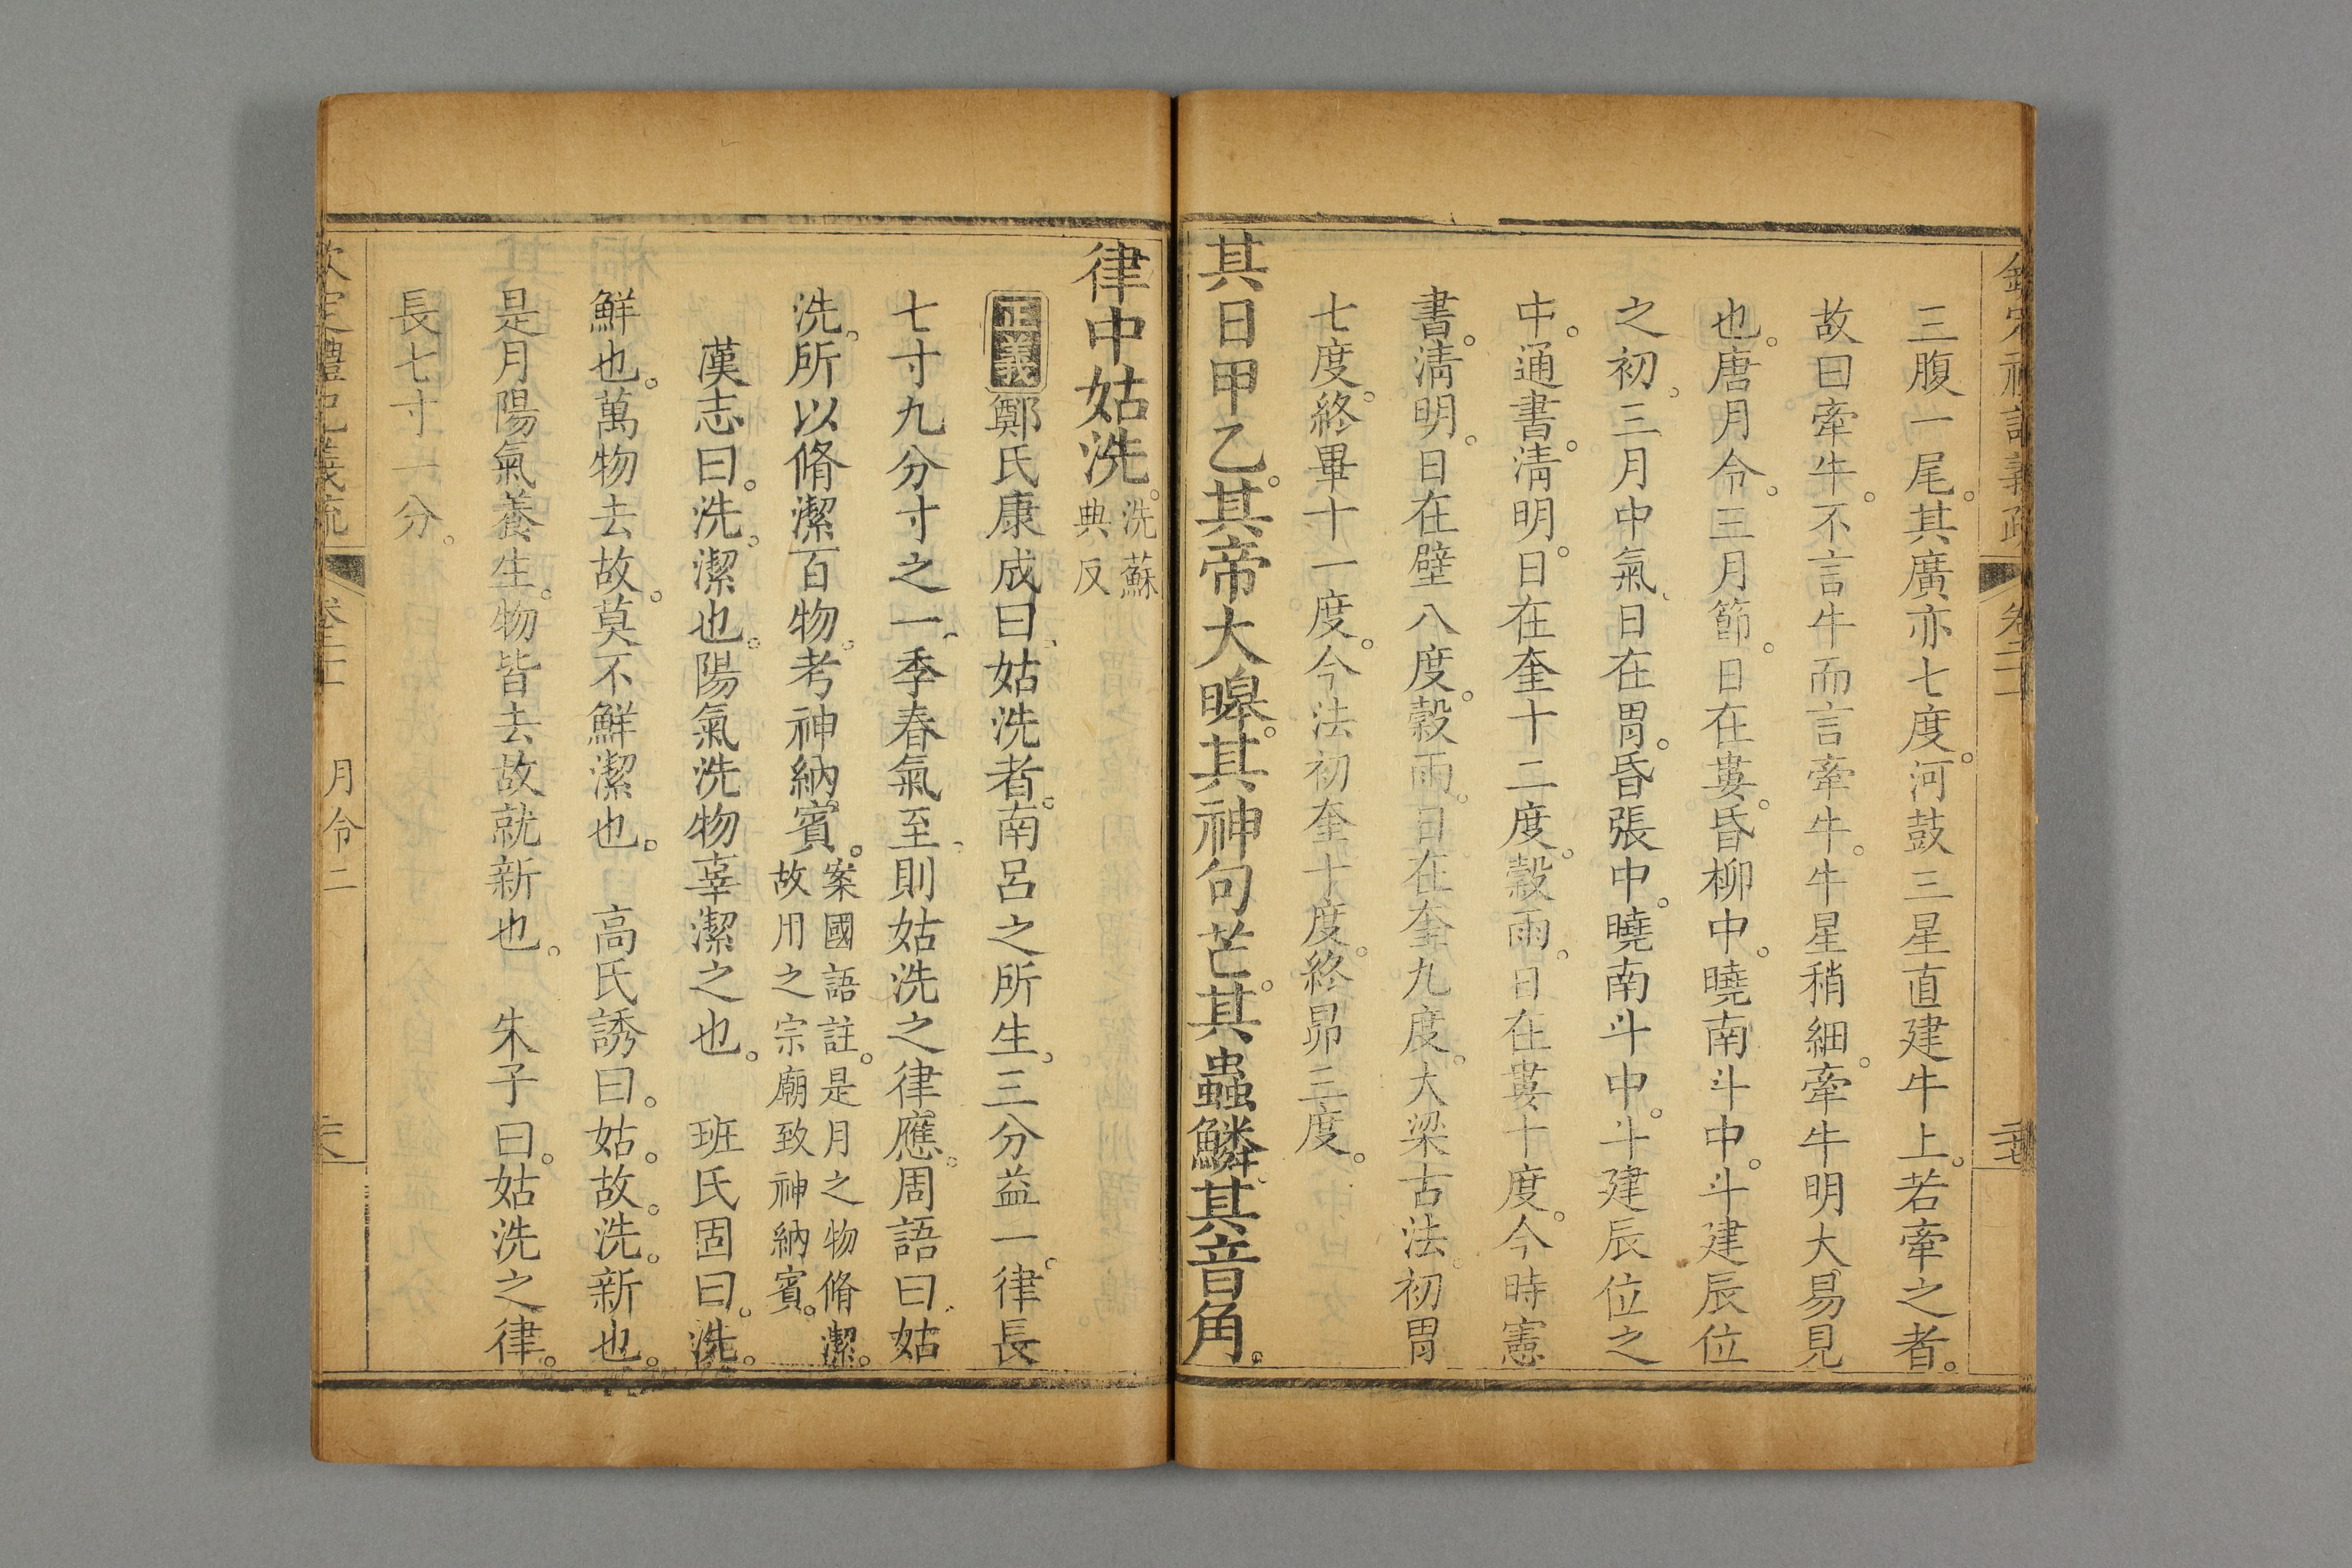 欽定禮記義疏 卷二十一
三腹一尾。其廣亦七度。河鼓三星直建牛上。若牽之者。
故曰牽牛。不言牛而言牽牛。牛星稍細。牽牛明大。易見
也。唐月令。三月節。日在婁。昏柳中。曉南斗中。斗建辰位
之初。三月中氣。日在胃。昏張中。曉南斗中。斗建辰位之
中。通書。淸明。日在奎十二度。穀雨。日在婁十度。今時憲
書。淸明。日在壁八度。穀雨。日在奎九度。大梁古法。初胃
七度。終畢十一度。今法初奎十度。終昴三度。
其日甲乙。其帝大皡。其神句芒。其蟲鱗。其音角。
律中姑洗。洗蘇典反
正義鄭氏康成曰。姑洗者。南呂之所生。三分益一。律長
七寸九分寸之一。季春氣至。則姑洗之律應。周語曰。姑
洗。所以脩潔百物。考神納賓。案國語註。是月之物脩潔。故用之宗廟致神納賓。
漢志曰。洗。潔也。陽氣洗物辜潔之也。 班氏固曰。洗。
鮮也。萬物去故。莫不鮮潔也。 高氏誘曰。姑。故。洗。新也。
是月陽氣養生。物皆去故就新也。 朱子曰。姑洗之律。
長七寸一分。
欽定禮記義疏 卷二十一 月令二